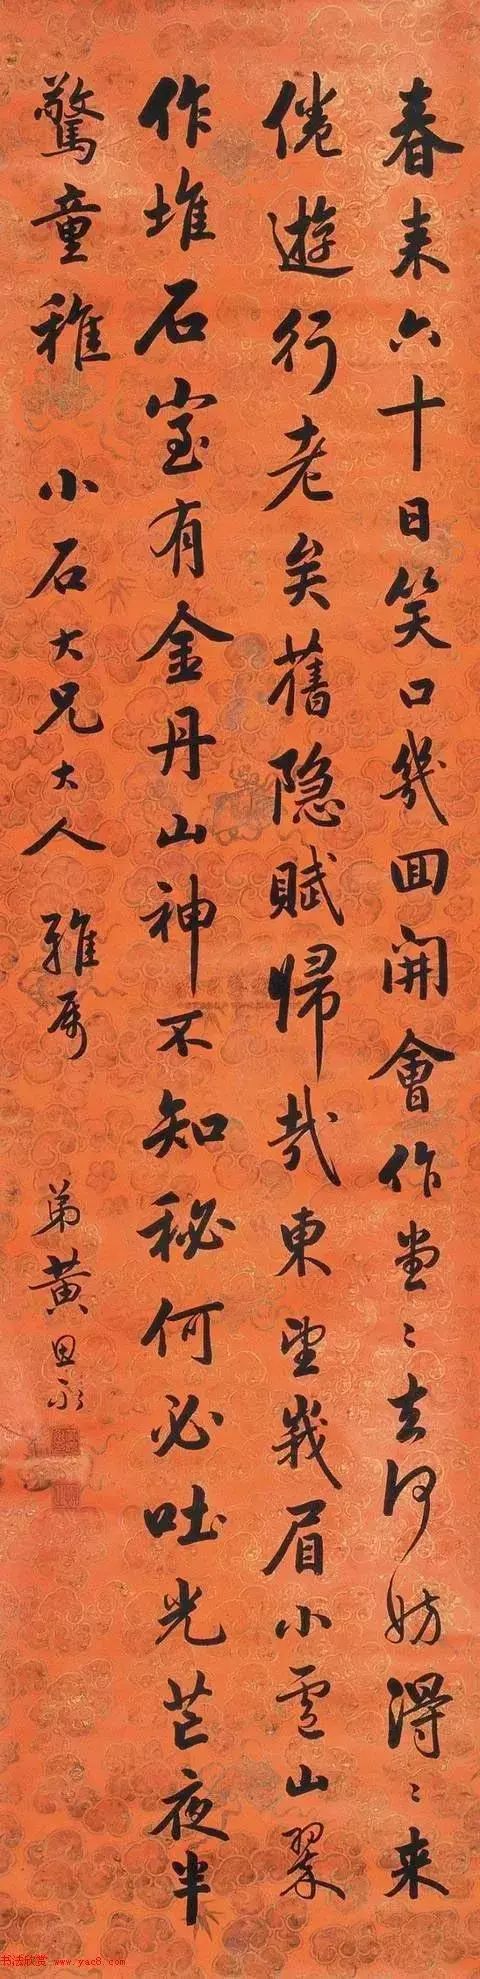 春来六十日笑口幾囬開會作堂〻去何妨得〻来
倦遊行老矣舊隐賦歸哉東望峩眉小廬山翠
作堆石室有金丹山神不知秘何必吐光芒夜半
驚童稚 小石大兄大人 雅属 弟黄思永
书法欣赏 www.yac8.com